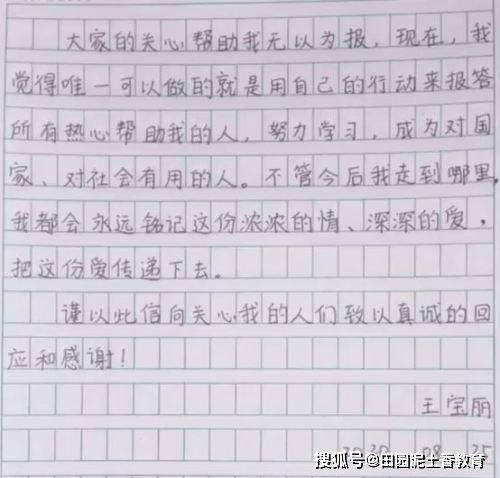 大家的关心帮助我无以为报，现在，我
觉得唯一可以做的就是用自己的行动来报答
所有热心帮助我的人，努力学习，成为对国
家、对社会有用的人。不管今后我走到哪里，
我都会永远铭记这份浓浓的情、深深的爱，
把这份爱传递下去。
谨以此信向关心我的人们致以真诚的回
应和感谢！
王宝丽
2020 08 25
搜狐号@田园泥土香教育